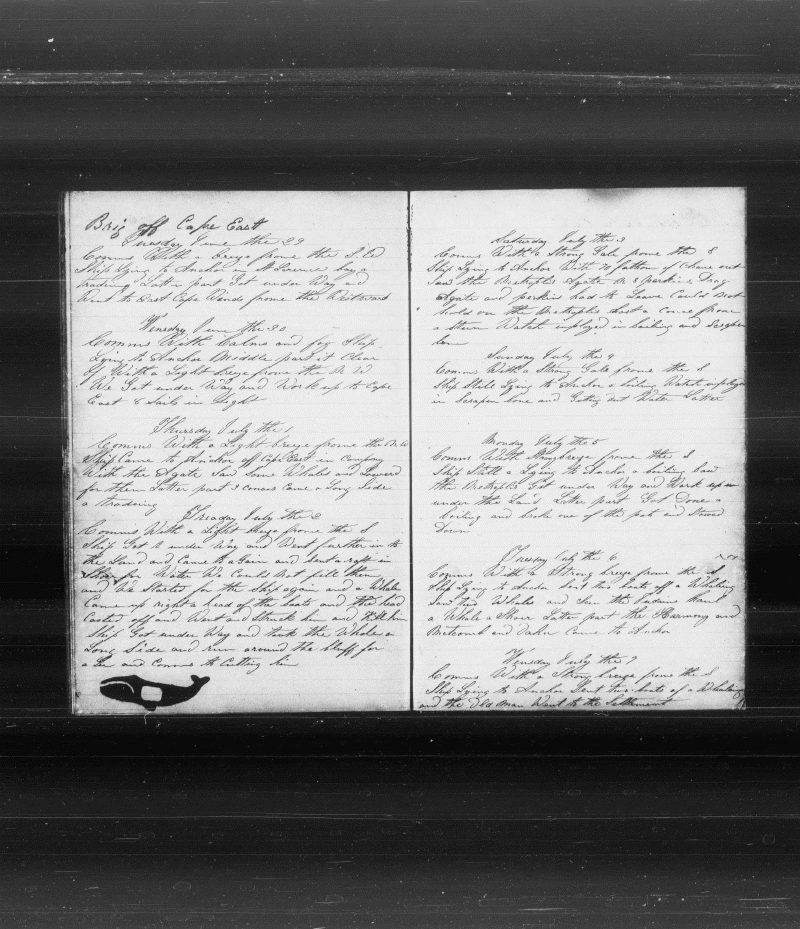 Brig off Cape East
Tuesday June the 29
Comms With a breze frome the S.W
Ship Lying to Anchor in St Lorence bay a
trading Latter part Got under Way and
Went to East Cape Wends frome the Westward
Wensday June the 30
Comms With Calms and fog Ship
Lying to Anchor Middle part it Clear
of With a Light breze frome the N W
We Got under Way and Work up to Cape
East 8 Sails in Sight
Thursday July the 1
Comms With a Light breeze frome the N W
Ship Came to Anchor off Cape East in Company
With the Agate Saw Some Whales and Lowerd
for them Latter part 3 Conoes Came a Long Side
a tradeing
Friday July the 2
Comms With a Light breze frome the S
Ship Got under Way and Went further in to
the Land and Came to a Gain and Sent a raft in
Shore for Water We Could Not fill them
and We Started for the ship again and a Whale
Came up right a head of the boats and the head
Casted off and Went and Struck him and Kill him
Ship Got under Way and took the Whale a
Long Side and run around the bluff for
a Lee and Comms to Cutting him
Saturday July the 3
Comms With a Strong Gale frome the S
Ship Lying to Anchor With 70 fathom of Chane out
Saw the Agate perkins
Agate and perkins had to Leave Could Not
hold on the Lost a Conoe frome
a Stern Watch imployed in boiling and Scrapen
bone
Sunday July the 4
Comms With a Strong Gale frome the S
Ship Still Lying to Anchor a boiling Watch imployed
in Scrapen bone and Getting out Water Latter
Monday July the 5
Comms With Strong breze frome the S
Ship Still a Lying to Anchor a boiling Saw
the Got under Way and Work up
under the Land Latter part Got Done a
boiling and broke one of the pots and Stowed
Down
Tuesday July the 6
Comms With a Strong breeze frome the S
Ship Lying to Anchor Sent two boats off a Whaleing
Saw two Whales and Seen the
a Whale a Shore Latter part the Harmony and
and Came to Anchor
Wensday July the 7
Comms With a Strong breeze frome the S
Ship Lying to Anchor Sent two boats of a Whaleing
and the Old man Went to the Settlement